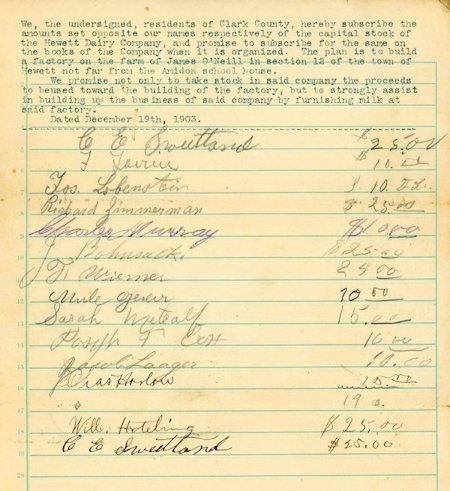 We, the undersigned, residents of Clark County, hereby subscribe the
amounts set opposite our names respectively of the capital stock of
the Hewett Dairy Company, and promise to subscribe for the same on
the books of the Company when it is organized. The plan is to build
a factory on the farm of James O'Neill in section 12 of the town of
Hewett not far from the Amidon school house.
We promise not only to take stock in said company the proceeds
to beused toward the building of the factory, but to strongly assist
in building up the business of said company by furnishing milk at
said factory.
Dated December 19th, 1903.
C E Sweetland $25.00
$10.
Jos. Lobenstein $10.
Richard Zimmerman $25.00
Charles Murray $10.00
J Bohnsack $25.00
F. Wiesner 25.00
10.00
Sarah Metcalf 15.00
Joseph F 10.00
Jacob Laager 10.00
Chas Harlow
19
Will. Hoteling $25.00
C E Sweetland $25.00